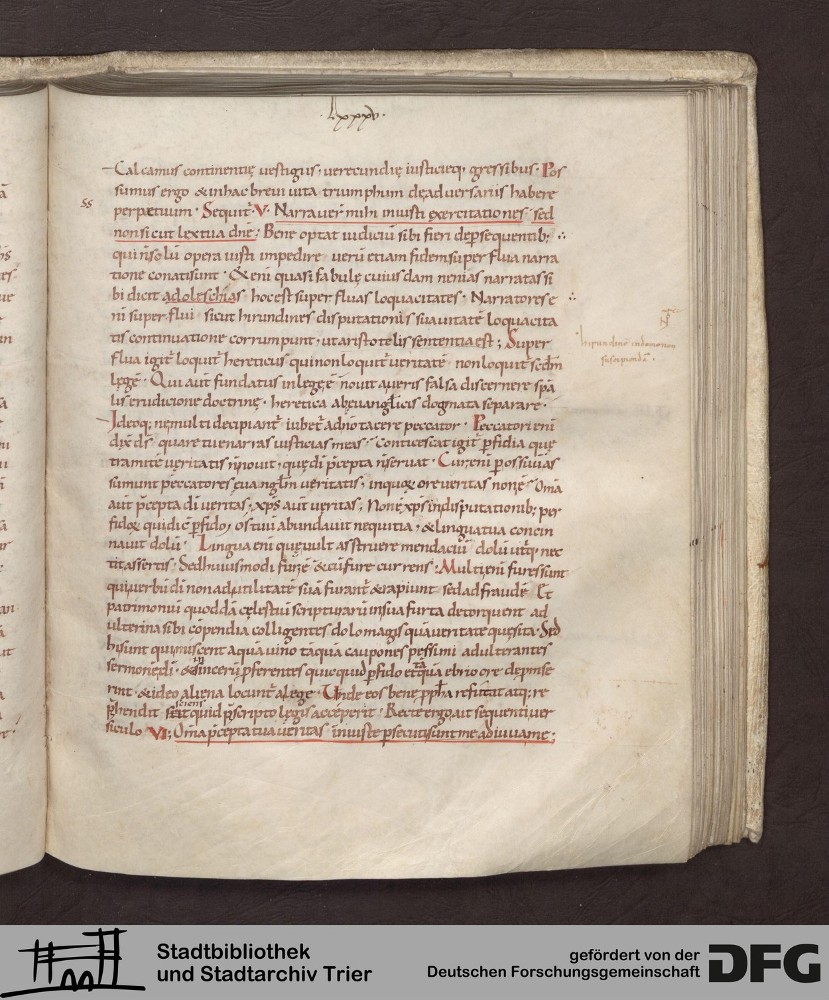 · Lxxxv ·
Calcamus continentię uestigiis, uerecundię iusticięq; gressibus. Pos
sumus ergo & in hac breui uita triumphum de aduersariis habere
ss
perpetuum. Sequit̄ V. Narrauer̄ mihi iniusti exercitationes sed
non sicut lex tua dn̄e; Bene optat iudiciū sibi fieri de p̄sequentib; ∴
qui n̄ solū opera iusti impedire uerū etiam fidem superflua narra
tione conati sunt. & enī quasi fabulę cuiusdam nenias narratas si
bi dicit adoleschias hoc est superfluas loquacitates. Narratores e
nī superflui sicut hirundines disputationis suauitatē loquacita
hirundinē in domo non
suscipiendā.
tis continuatione corrumpunt, ut aristotelis sententia est; Super
flua igit̄ loquit̄ hereticus qui non loquit̄ ueritatē non loquit̄ sc̄dm
legē. Qui aut̄ fundatus in lege ē nouit a ueris falsa discernere spā
lis erudicione doctrinę, heretica ab euangelicis dogmata separare.
Ideoq; ne multi decipiant̄ iubet̄ a dn̄o tacere peccator. Peccatori enī
dix̄ ds̄ quare tu enarras iusticias meas. Conticescat igit̄ p̄fidia quę
tramitē ueritatis n̄ nouit, quę dī p̄cepta n̄ seruat. Cur enī possū
sumunt peccatores euangliū ueritatis, in quoꝝ ore ueritas non ē. Om̄a
aut̄ p̄cepta dī ueritas, xp̄s aut̄ ueritas, Non ē xp̄s in disputationib; per
fidoꝝ qui dic̄ p̄fido, os tuū abundauit nequitia, & lingua tua concin
nauit dolū. Lingua enī quę uult asstruere mendaciū dolū utiq; nec
tit assertis. Sed huiusmodi fur ē & cū fure currens. Multi enī fures sunt
qui uerbū dī non ad utilitatē suā furant̄ & rapiunt sed ad fraudē. Et
patrimoniū quoddā cęlestiū scripturarū in sua furta detorquent ad
ulterina sibi cōpendia colligentes dolo magis quā ueritate quęsita. Sed
hi sunt qui miscent aquā uino tāquā caupones pessimi adulterantes
sermonē dī, & sincerū p̄ferentes quicquid p̄fido & tāquā ebrio ore depmse
rint, & ideo aliena locunt̄ a lege. Unde eos bene pph̄a refutat atq; re
p̄hendit sciens quid p̄scripto legis acceperit. Recte ergo ait sequenti uer
siculo VI; Om̄a p̄cepta tua ueritas iniuste p̄secuti sunt me adiuua me;
Stadtbibliothek
und Stadtarchiv Trier
gefördert von der
Deutschen Forschungsgemeinschaft
DFG